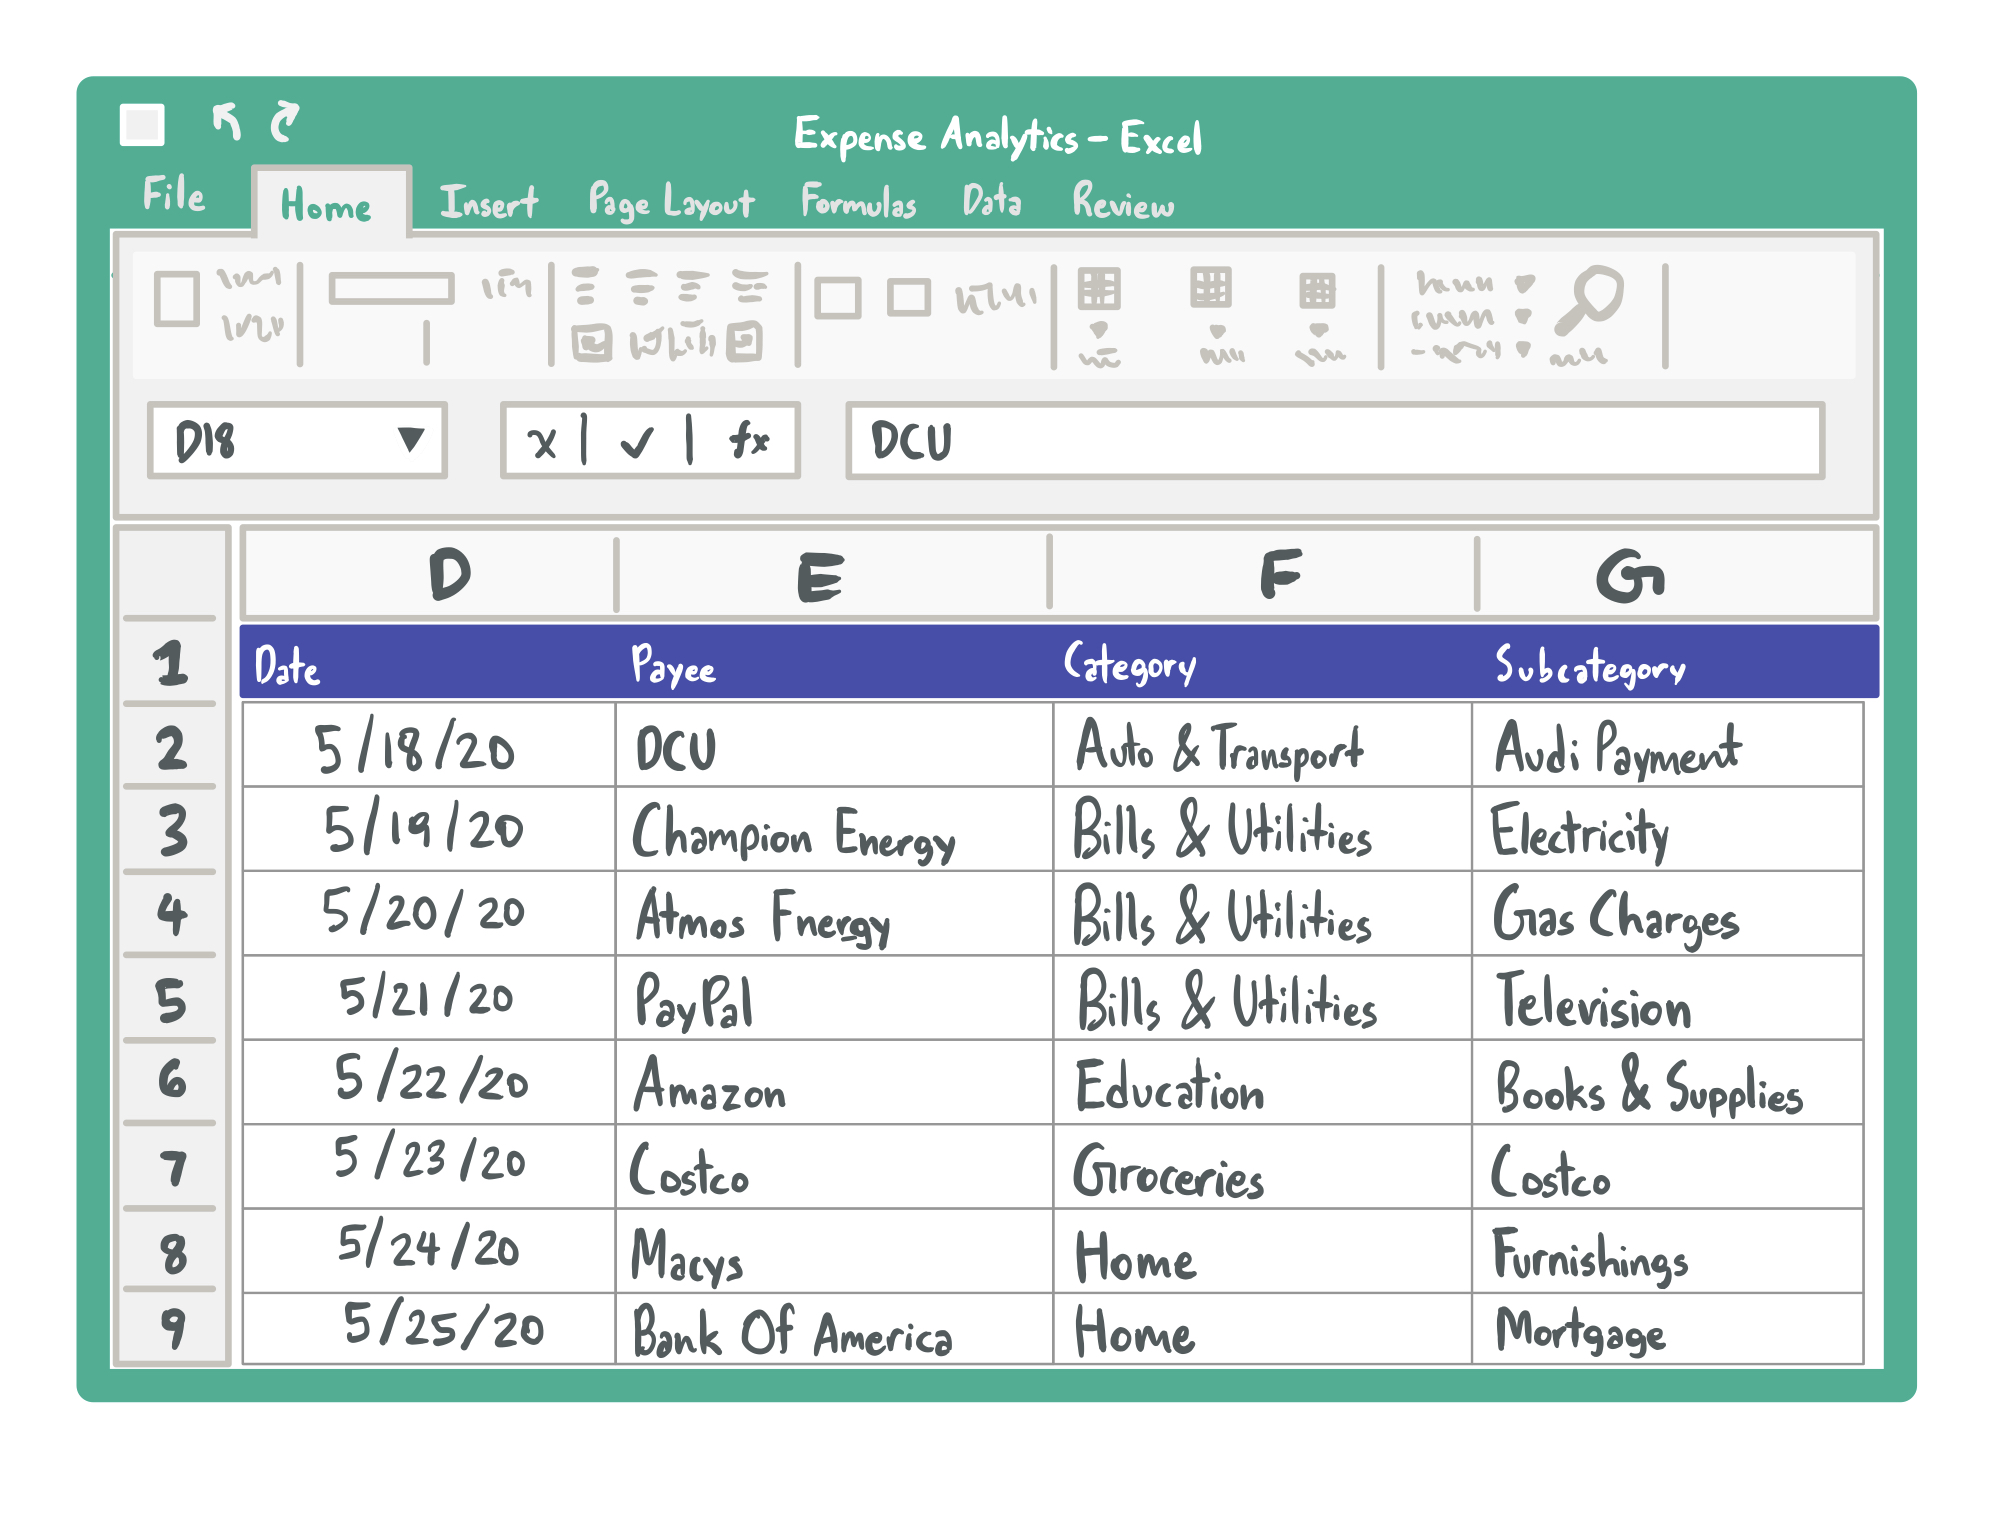 Expense Analytics - Excel
File Home Insert Page Layout Formulas Data Review
D18 x ✓ fx DCU
D E F G
1 Date Payee Category Subcategory
2 5/18/20 DCU Auto & Transport Audi Payment
3 5/19/20 Champion Energy Bills & Utilities Electricity
4 5/20/20 Atmos Fnergy Bills & Utilities Gas Charges
5 5/21/20 PayPal Bills & Utilities Television
6 5/22/20 Amazon Education Books & Supplies
7 5/23/20 Costco Groceries Costco
8 5/24/20 Macys Home Furnishings
9 5/25/20 Bank Of America Home Mortgage